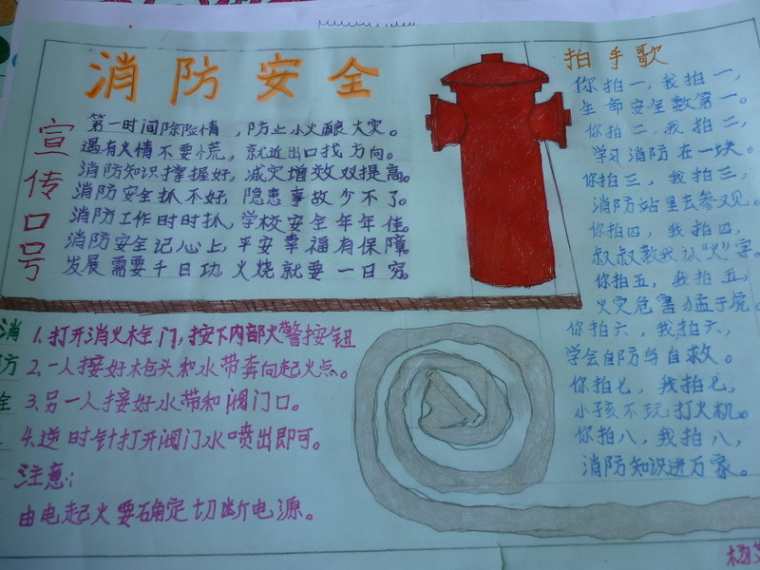 消防安全
宣传口号
第一时间除险情，防止小火酿大灾。
遇有火情不要慌，就近出口找方向。
消防知识掌握好，减灾增效双提高。
消防安全抓不好 隐患事故少不了。
消防工作时时抓，学校安全年年佳。
消防安全记心上，平安幸福有保障
发展需要千日功 火烧就要一日穷。
拍手歌
你拍一，我拍一，
生命安全数第一。
你拍二，我拍二，
学习消防在一块。
你拍三，我拍三，
消防站里去参观。
你拍四，我拍四，
叔叔教我认“火”字。
你拍五，我拍五，
火灾危害猛于虎。
你拍六，我拍六，
学会自防与自救。
你拍七，我拍七，
小孩不玩打火机。
你拍八，我拍八，
消防知识进万家。
消防全
1.打开消火栓门，按下内部火警按钮
2.一人接好枪头和水带奔向起火点。
3.另一人接好水带和阀门口。
4.逆时针打开阀门水喷出即可。
注意：
由电起火要确定切断电源。